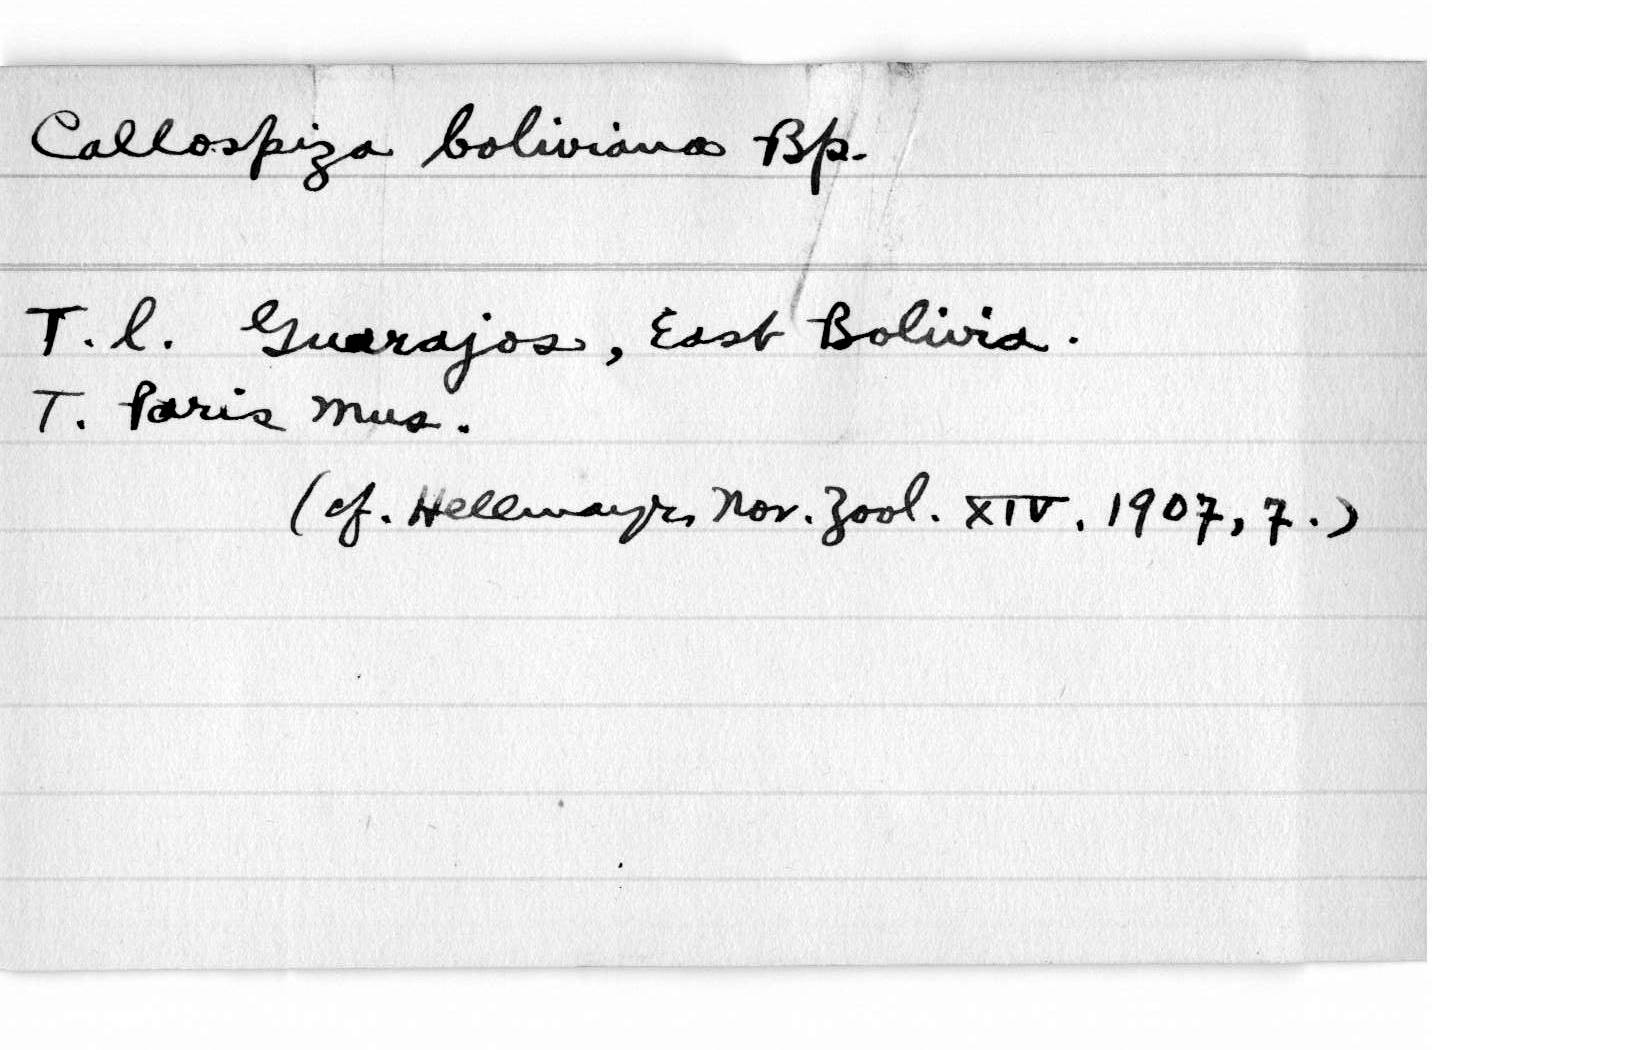 Callospiza boliviana Bp.
T. l. Guarajos, East Bolivia.
T. Paris Mus.
(cf. Hellmayr, Nov. Zool. XIV. 1907, 7.)